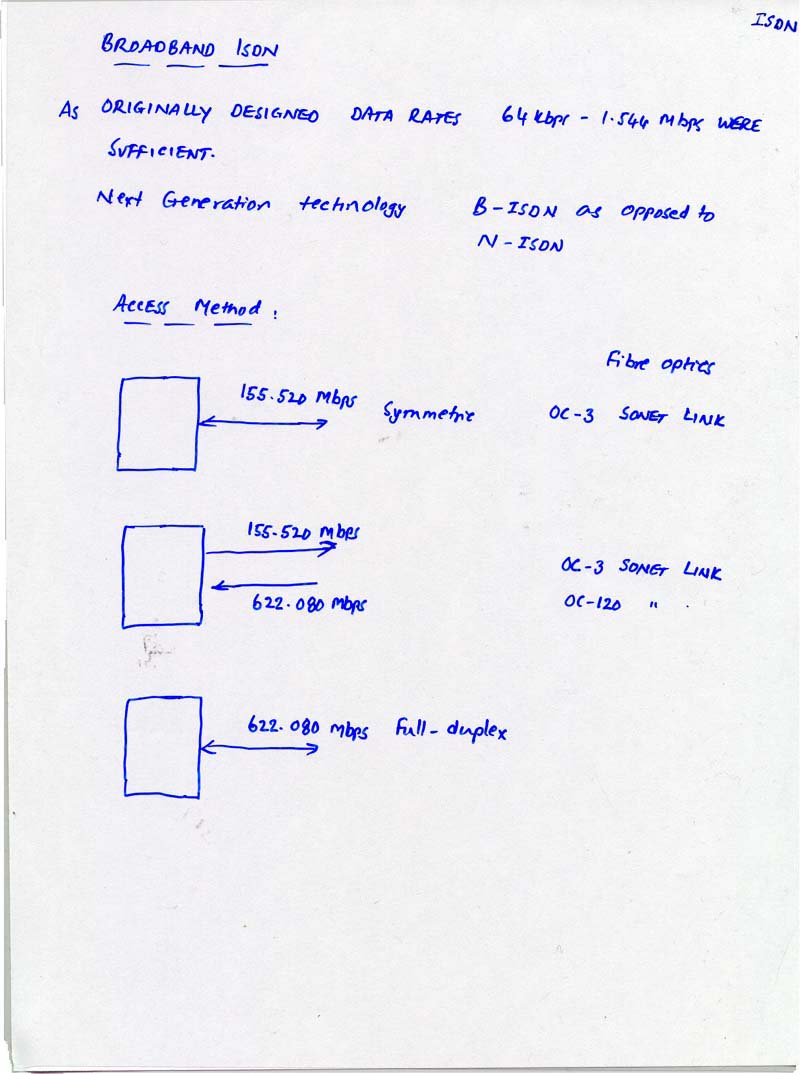 ISDN
BROADBAND ISDN
As ORIGINALLY DESIGNED DATA RATES 64 kbps - 1.544 Mbps WERE
SUFFICIENT.
Next Generation technology B-ISDN as opposed to
N-ISDN
Access Method:
Fibre optics
155.520 Mbps Symmetric OC-3 SONET LINK
155.520 Mbps
OC-3 SONET LINK
622.080 Mbps OC-120 " .
622.080 Mbps Full-duplex